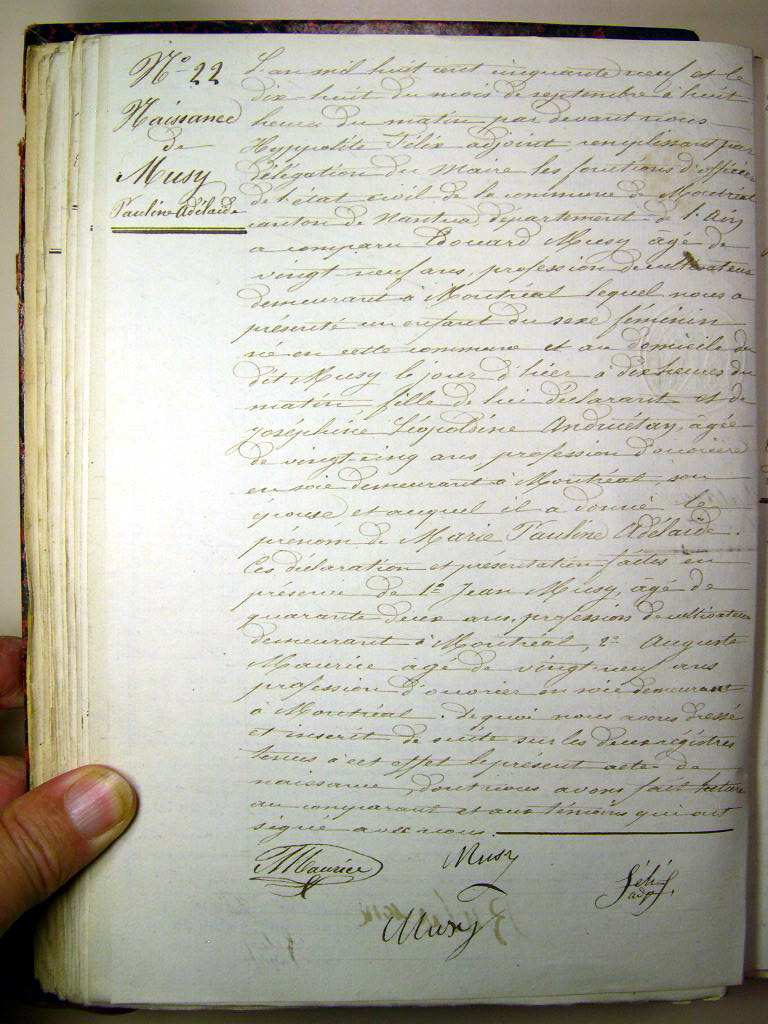 N.º 22
Naissance
de
Musy
Pauline Adélaide
L'an mil huit cent cinquante neuf et le
dix huit du mois de septembre à huit
heures du matin par devant nous
Hyppolite Félix adjoint, remplissant par
délégation du Maire les fonctions d'officier
de l'état civil de la commune de Montréal
canton de Nantua département de l'Ain
a comparu Edouard Musy âgé de
vingt neuf ans, profession de cultivateur
demeurant à Montréal lequel nous a
présenté un enfant du sexe féminin
né en cette commune et au domicile du
dit Musy le jour d'hier à dix heures du
matin, fille de lui déclarant et de
Joséphine Léopoldine Andruétan, âgée
de vingt cinq ans profession d'ouvrière
en soie demeurant à Montréal, son
épouse et auquel il a donné le
prénom de Marie Pauline Adélaide.
Ces déclaration et présentation faites en
présence de 1º Jean Musy, âgé de
quarante deux ans, profession de cultivateur
demeurant à Montréal, 2º Auguste
Maurice âgé de vingt neuf ans
profession d'ouvrier en soie demeurant
à Montréal. De quoi nous avons dressé
et inscrit de suite sur les deux régistres
tenus à cet effet le présent acte de
naissance, dont nous avons fait lecture
au comparant et aux témoins qui ont
signé avec nous.
Maurice Musy Félix adj.
Musy